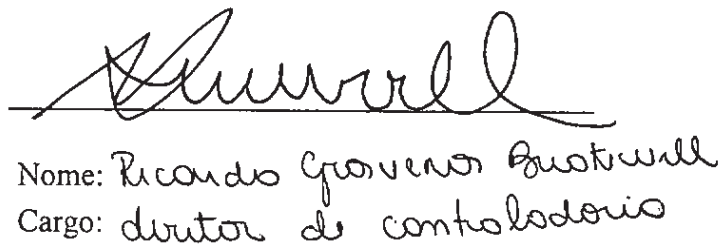 Nome: Ricardo Grosvenor
Cargo: diretor de controladoria